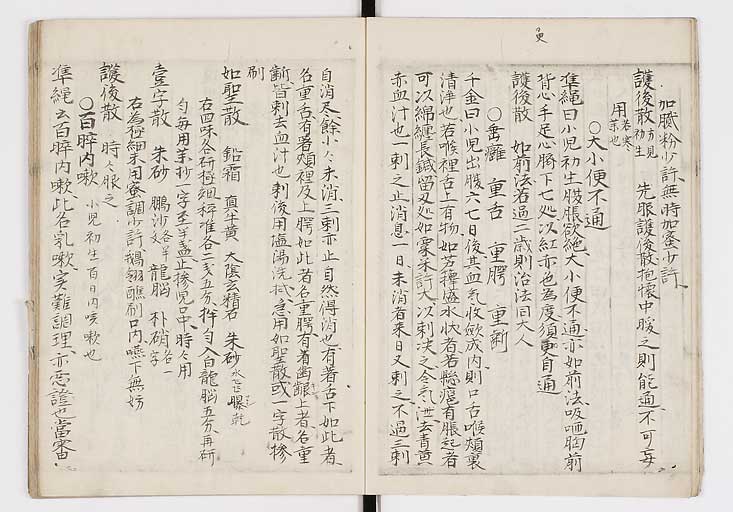 加膩粉少許無時加蜜少許
護後散 方見初生 先服護後散抱懐中暖之則能通不可毎
用 若寒薬也
○大小便不通
準縄曰小児初生腹脹欲絶大小便不通亦如前法吸咂胸前
背心手足心臍下七処以紅赤色為度須臾自通
護後散 如前法若過二歳則治法同大人
○重齶 重舌 重腭 重齗
千金曰小児出腹六七日後其血気收斂成肉則口舌喉頬裏
清浄也若喉裡舌上有物如芦籜盛水状者若懸癰有脹起者
可以綿纏長鍼留刃処如粟米許大以刺决之令気泄去青黄
赤血汁也一刺之止消息一日未消者来日又刺之不過三刺
自消尽餘小々未消三刺亦止自然得消也有著舌下如此者
名重舌有著頬裡及上腭如此者名重腭有著歯齦上者名重
齗皆刺去血汁也刺後用塩湯洗拭急用如聖散或一字散摻
刷
如聖散 鉛霜 真牛黄 太陰玄精石 朱砂 水飛曝乾
右四味各研極細秤准各二戔五分拌匀入白龍脳五分再研
匀毎用末抄一字至半盞止摻児口中時々用
壹字散 朱砂 鵬沙 各半戔 龍脳 朴硝 各一字
右為極細末用蜜調少許鵝翎蘸刷口内嚥下無妨
護後散 時々服之
○百晬内嗽 小児初生百日内咳嗽也
準縄云百晬内嗽此名乳嗽実難調理亦悪證也當審